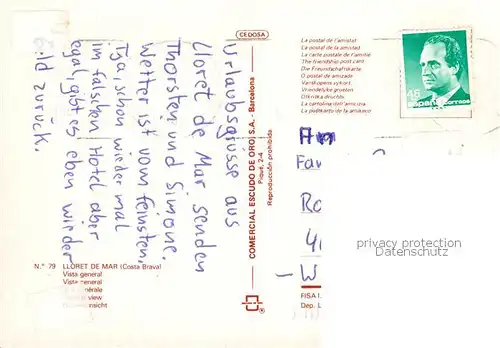 Urlaubsgrüsse aus
Lloret de Mar senden
Thorsten und Simone.
Wetter ist vom feinsten.
Tja, schon wieder mal
im falschen Hotel aber
egal, gibt es eben wieder
Geld zurück.
CEDOSA
COMERCIAL ESCUDO DE ORO, S.A. - Barcelona
Piqué, 2-4
Reproducción prohibida
La postal de l'amistat
La postal de la amistad
La carte postale de l'amitié
The friendship post card
Die Freundschaftskarte
O postal de amizade
Vänskapens vykort
Vriendelijke groeten
La cartolina dell'amicizia
48
España correos
Fa
Ro
41
- W
privacy protection
Datenschutz
N.º 79 LLORET DE MAR (Costa Brava)
Vista general
Vista general
view
FISA I.
Dep. L